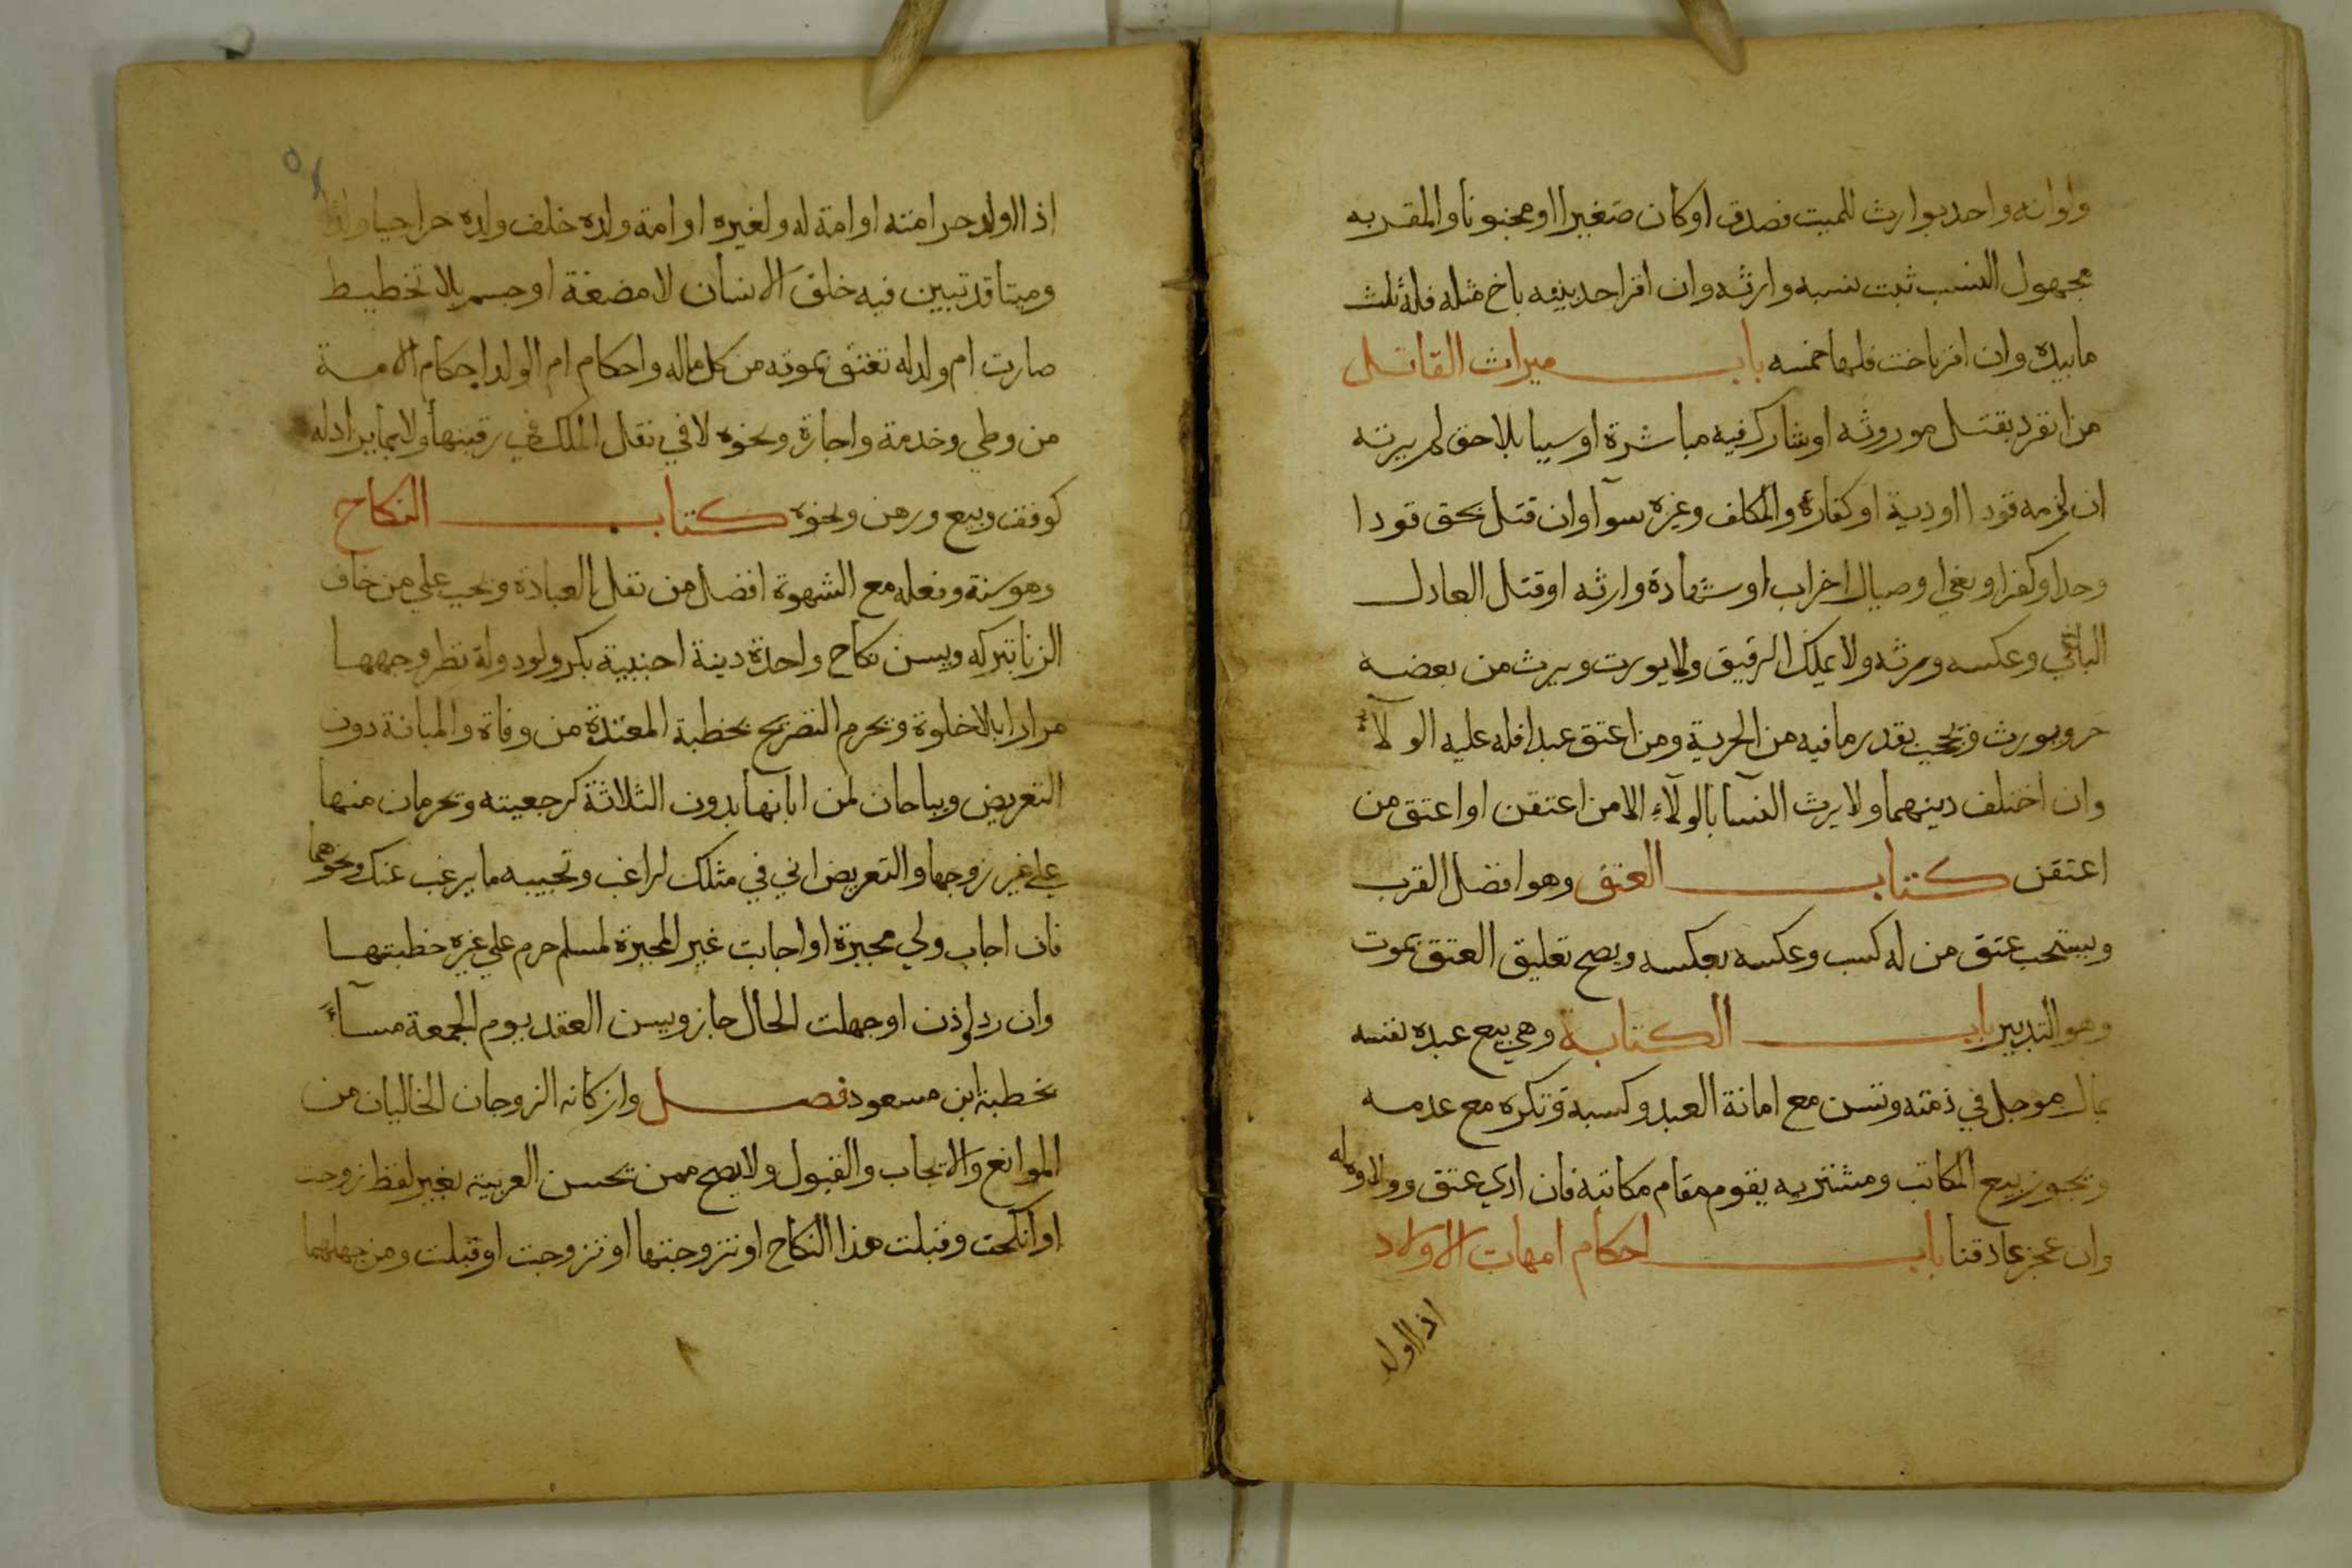 ولو انه واحد بوارث للميت فصدق او كان صغيرا او مجنونا والمقر به
مجهول النسب ثبت نسبه وارثه وان اقر احد بنيه باخ مثله فله ثلث
ما بيده وان اقر باخت فلها خمسه باب ميراث القاتل
من انفرد بقتل موروثه او شارك فيه مباشرة او سببا بلا حق لم يرثه
ان لزمه قود او دية او كفارة والمكلف وغيره سوآ وان قتل بحق قودا
وحدا وكفرا وبغي او صيال او حراب او شهادة وارثه او قتل العادل
الباغي وعكسه ورثه ولا يملك الرقيق ولا يورث ويرث من بعضه
حر ويورث ويحجب بقدر ما فيه من الحرية ومن اعتق عبدا فله عليه الولآء
وان اختلف دينهما ولا يرث النسآ بالولآء الا من اعتقن او اعتق من
اعتقن كتاب العتق وهو افضل القرب
ويستحب عتق من له كسب وعكسه بعكسه ويصح تعليق العتق بموت
وهو التدبير باب الكتابة وهي بيع عبده نفسه
بمال موجل في ذمته وتسن مع امانة العبد وكسبه وتكره مع عدمه
ويجوز بيع المكاتب ومشتريه يقوم مقام مكاتبه فان ادي عتق وولاوه له
وان عجز عاد قنا باب احكام امهات الاولاد
اذا اولد
اذا اولد حر امته او امة له ولغيره او امة ولده خلف ولده حرا حيا ولد
وميتا قد تبين فيه خلق الانسان لا مضغة او جسم بلا تخطيط
صارت ام ولد له تعتق بموته من كل ماله واحكام ام الولد احكام الامة
من وطي وخدمة واجارة ونحوه لا في نقل الملك في رقبتها ولا بما يراد له
كوقف وبيع ورهن ونحوه كتاب النكاح
وهو سنة وفعله مع الشهوة افضل من نفل العبادة ويجب علي من خاف
الزنا بتركه ويسن نكاح واحدة دينة اجنبية بكر ولود وله نظر وجهها
مرارا بلا خلوة ويحرم التصريح بخطبة المعتدة من وفاة والمبانة دون
التعريض ويباحان لمن ابانها بدون الثلاثة كرجعيته ويحرمان منها
علي غير زوجها والتعريض اني في مثلك لراغب وتجيبه ما يرغب عنك ونحوهما
فان اجاب ولي مجبرة او اجابت غير المجبرة لمسلم حرم علي غيره خطبتها
وان رد او اذن او جهلت الحال جاز ويسن العقد يوم الجمعة مسآء
بخطبة ابن مسعود فصل واركانه الزوجان الخاليان من
الموانع والايجاب والقبول ولا يصح ممن يحسن العربية بغير لفظ زوجت
او انكحت وقبلت هذا النكاح او تزوجتها او تزوجت او قبلت ومن جهلهما